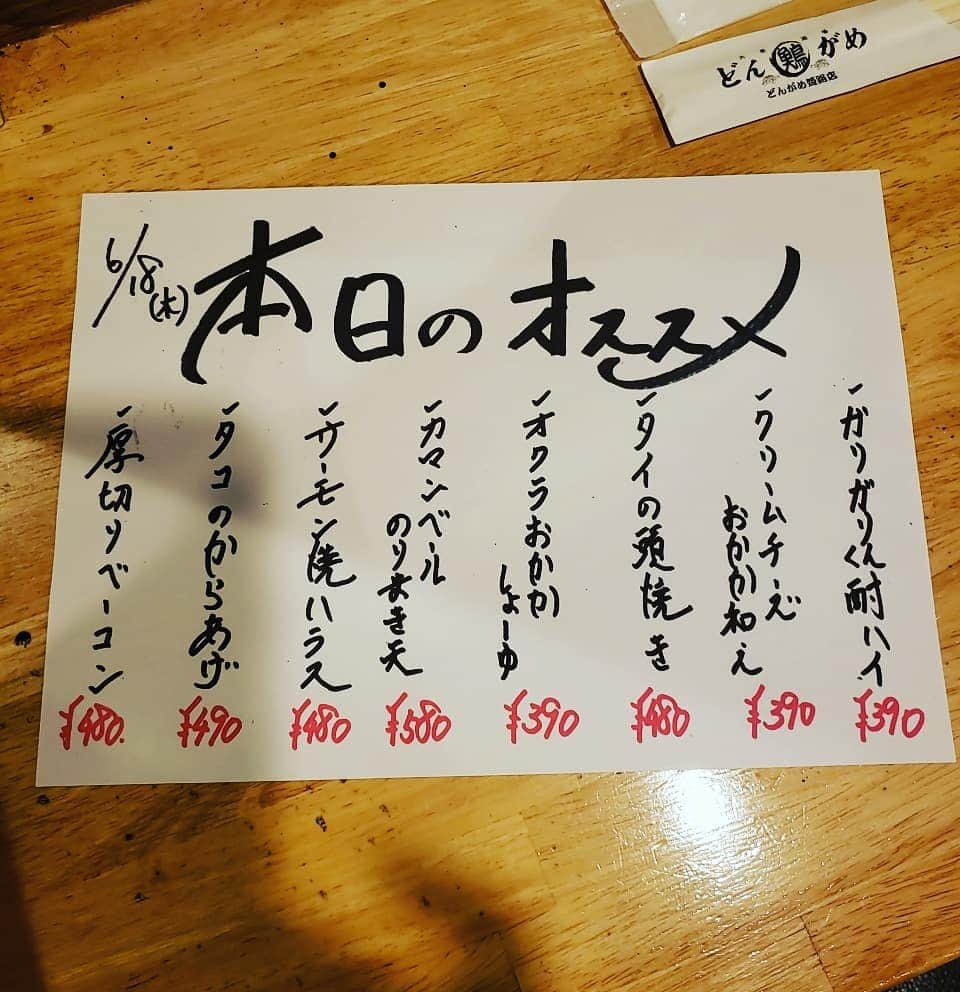 どん鶏がめ
6/18(木)
本日のオススメ
-ガリガリくん耐ハイ
¥390
-クリームチーズ
おかか和え
¥390
-タイの頭焼き
¥480
-オクラおかか
しょーゆ
¥390
-カマンベール
のりまき天
¥580
-サーモン焼ハラス
¥480
-タコのからあげ
¥490
-厚切りベーコン
¥480.